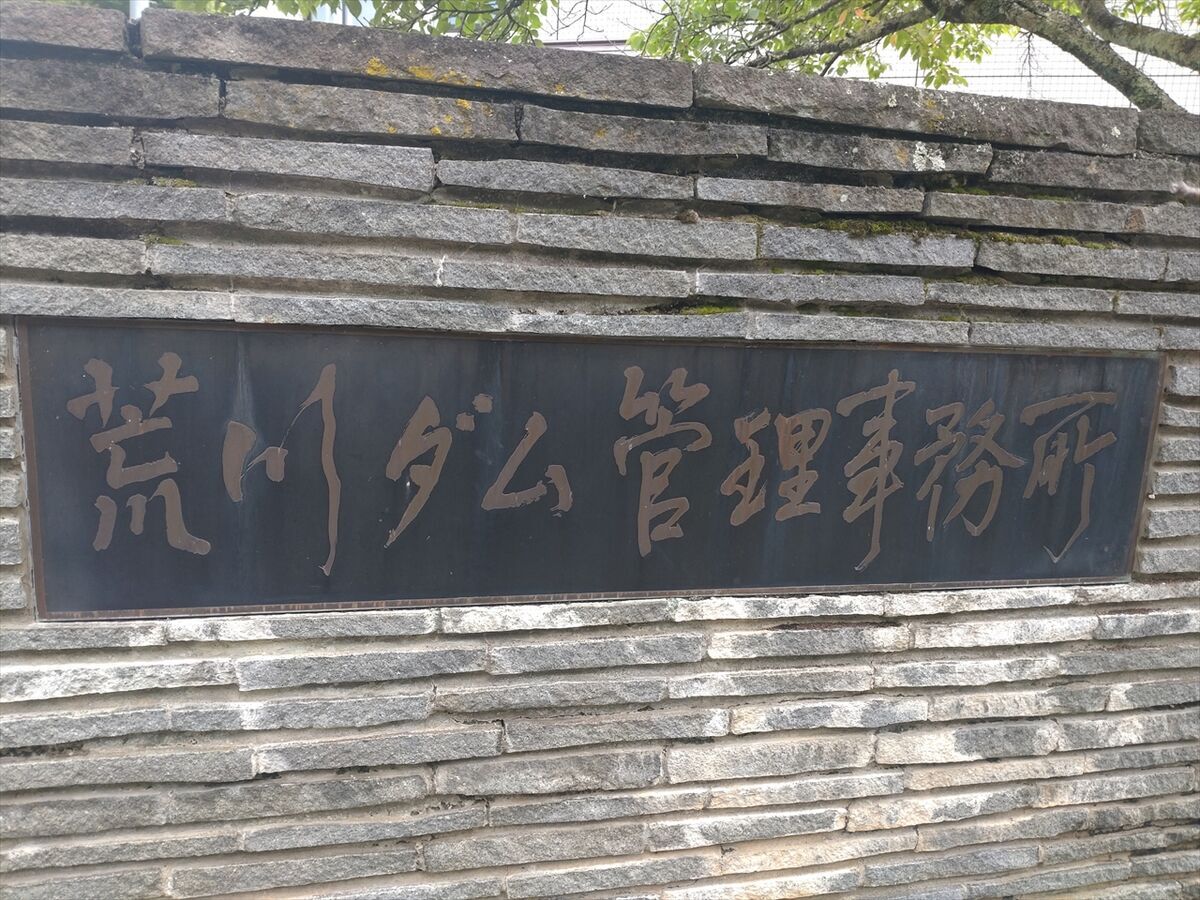 荒川ダム管理事務所